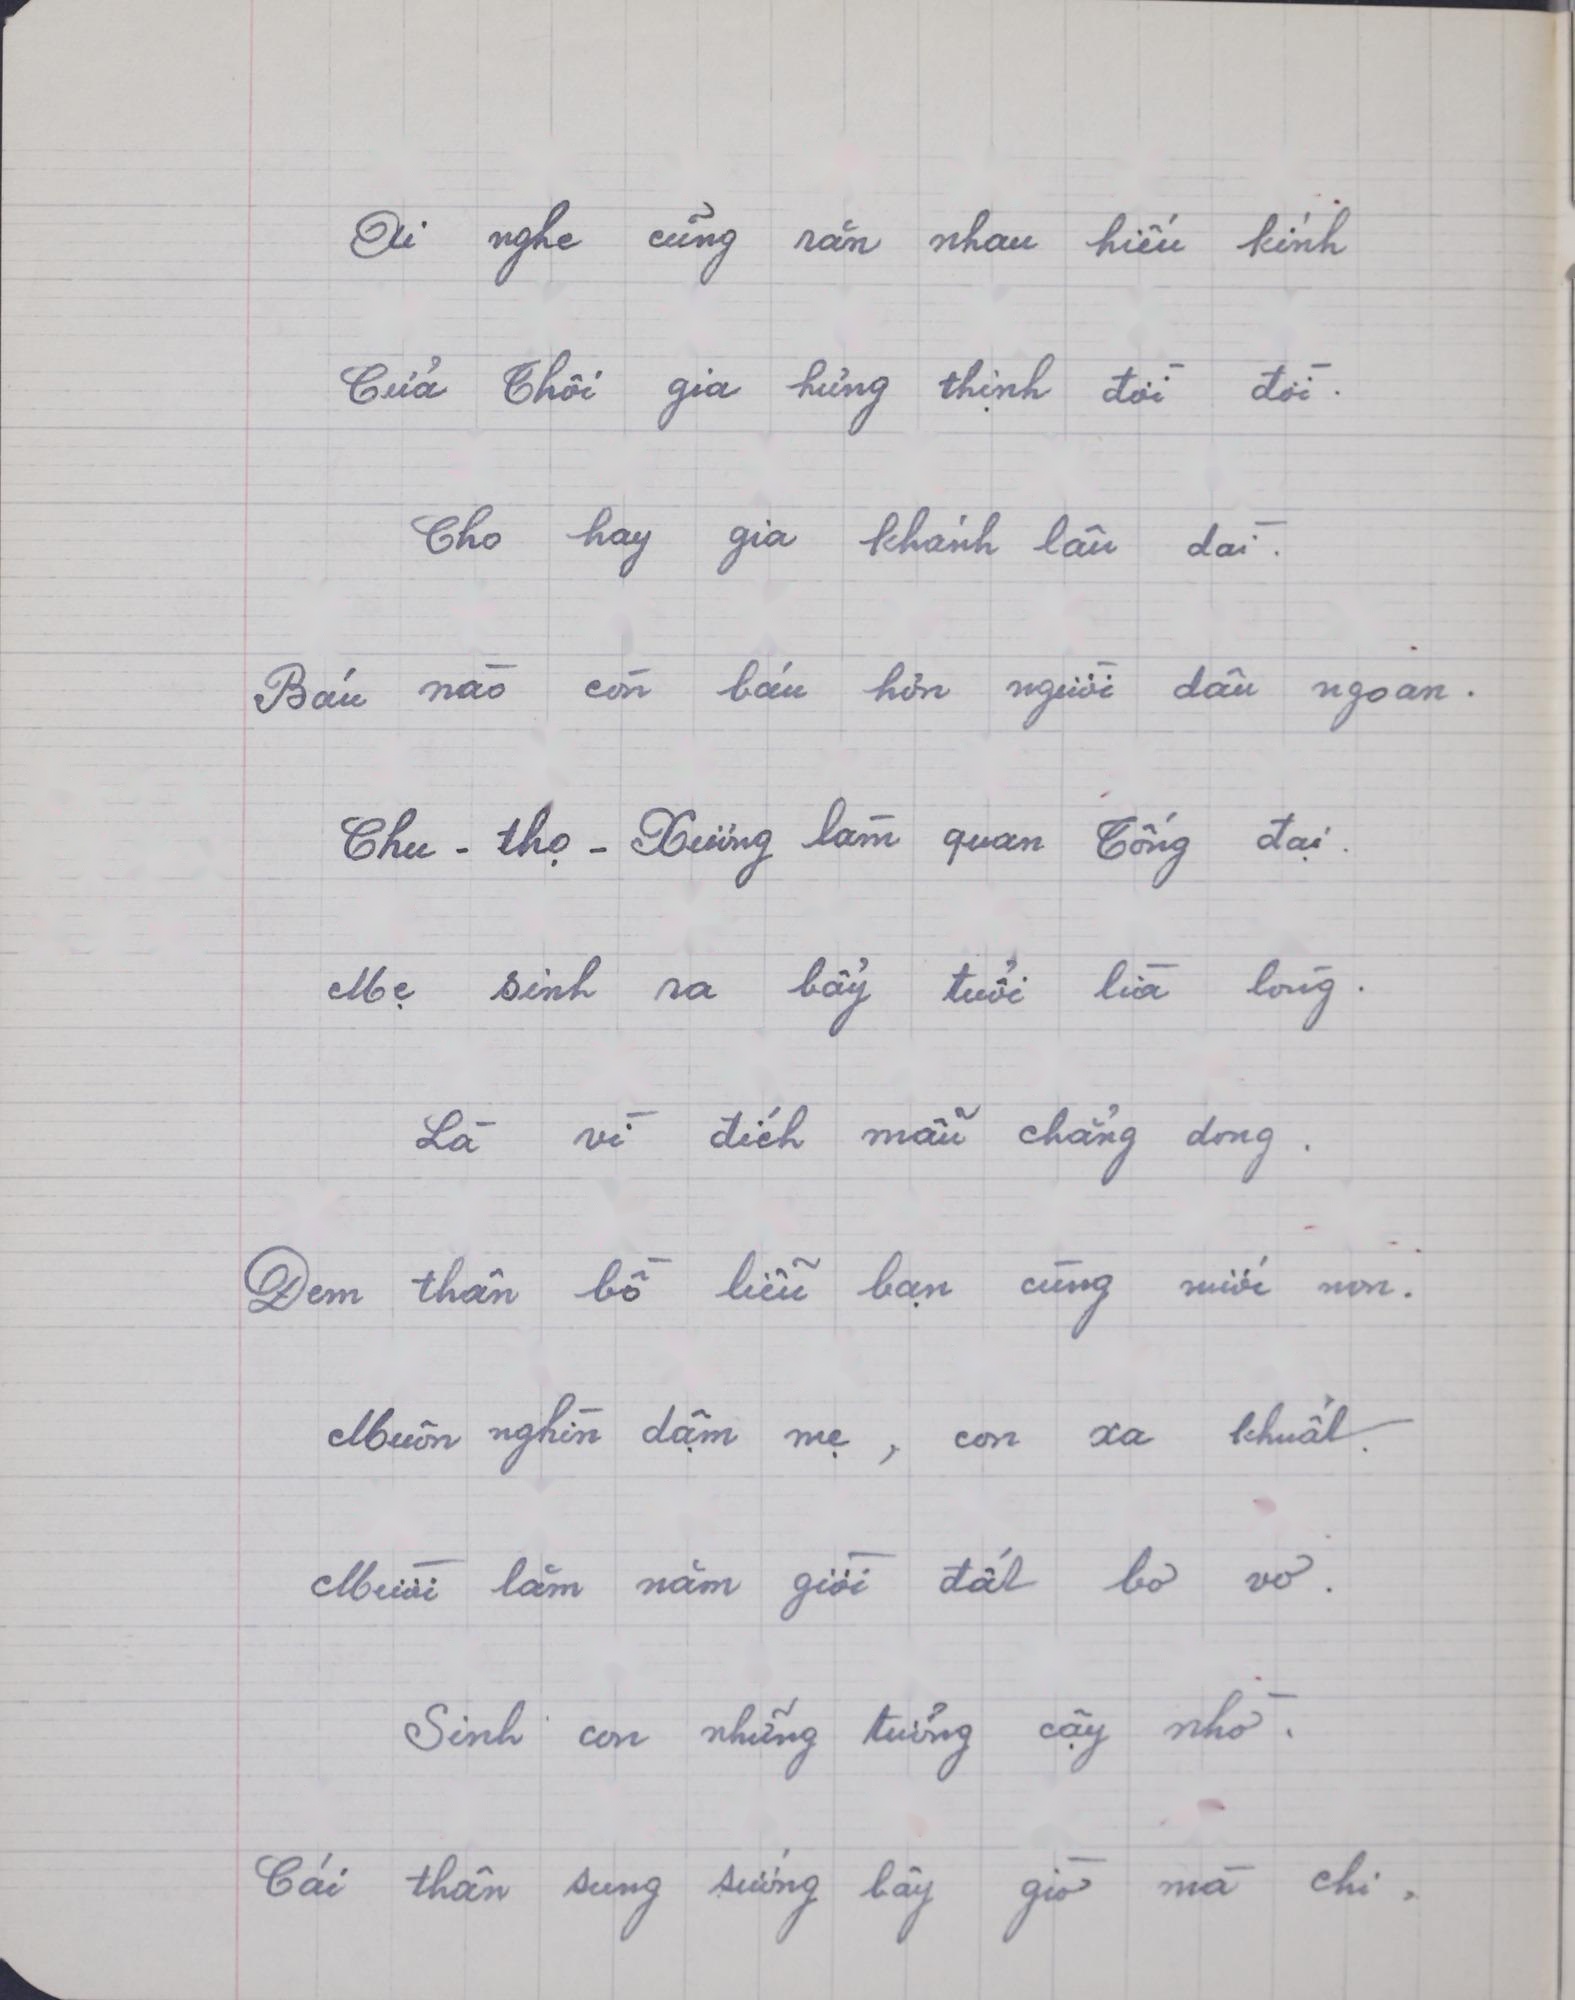 Ai nghe cũng răn nhau hiếu kính
Cửa Thôi gia hưng thịnh đời đời.
Cho hay gia khánh lâu dài.
Báu nào còn báu hơn người dâu ngoan.
Chu - thọ - Xương làm quan Tống đại.
Mẹ sinh ra bẩy tuổi lìa lòng.
Là vì đích mẫu chẳng dong.
Đem thân bồ liễu bạn cùng nước non.
Muôn nghìn dậm mẹ, con xa khuất.
Mười lăm năm giời đất bơ vơ.
Sinh con những tưởng cậy nhờ.
Cái thân sung sướng bây giờ mà chi.